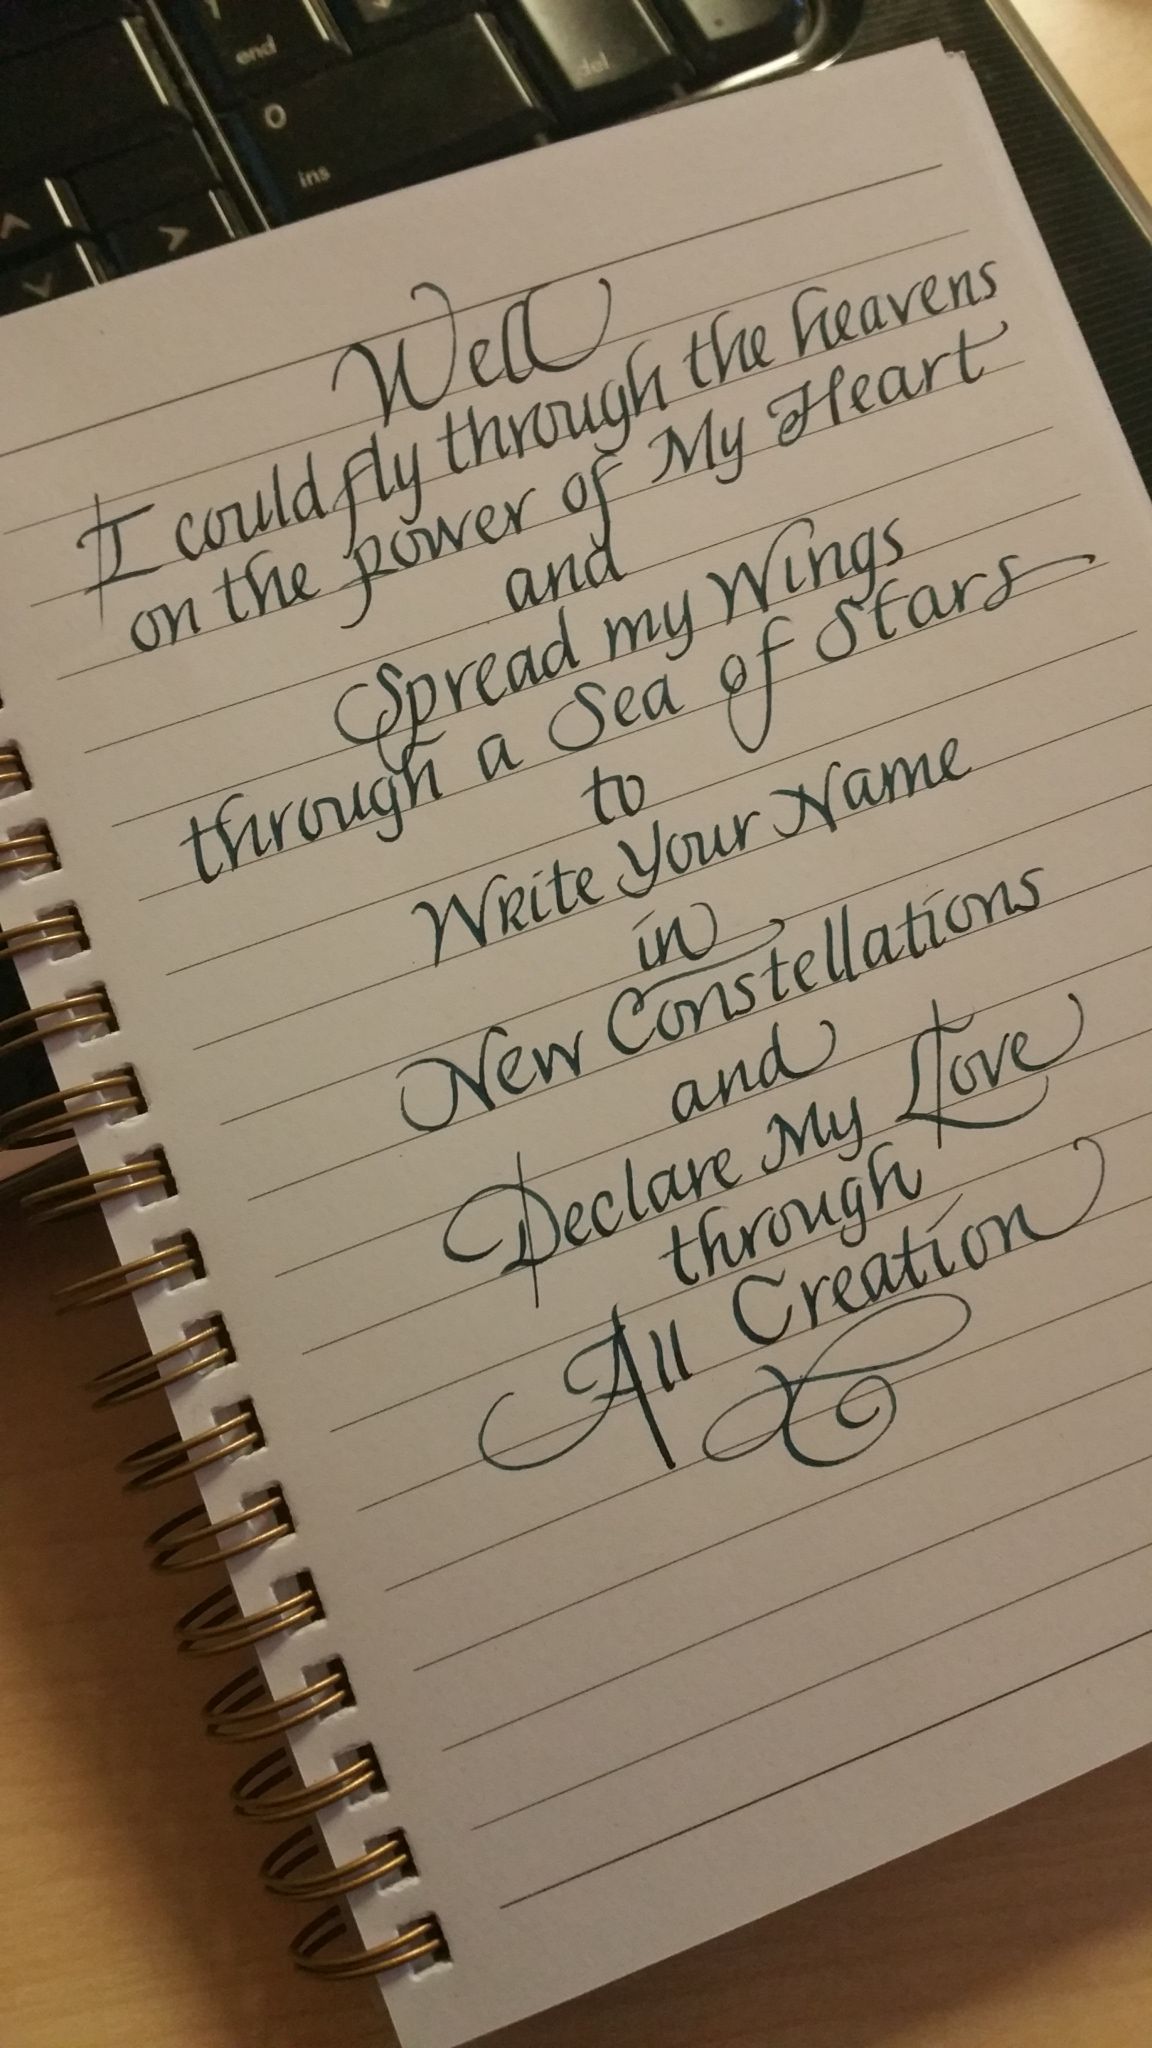 end
0
ins
del
Well
I could fly through the heavens
on the power of My Heart
and
Spread my Wings
through a Sea of Stars
to
Write Your Name
in
New Constellations
and
Declare My Love
through
All Creation